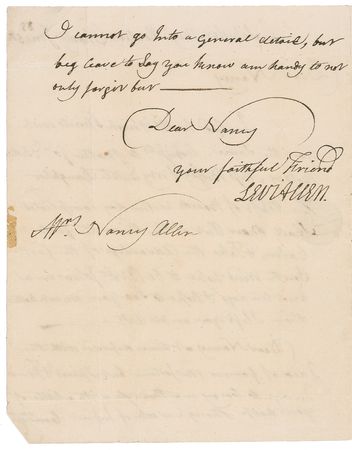 I cannot go Into a General detail, but
beg leave to Say you know am handy to not
only forgit but ———
Dear Nancy
your faithful Friend
LEVI ALLEN.
Mrs Nancy Allen